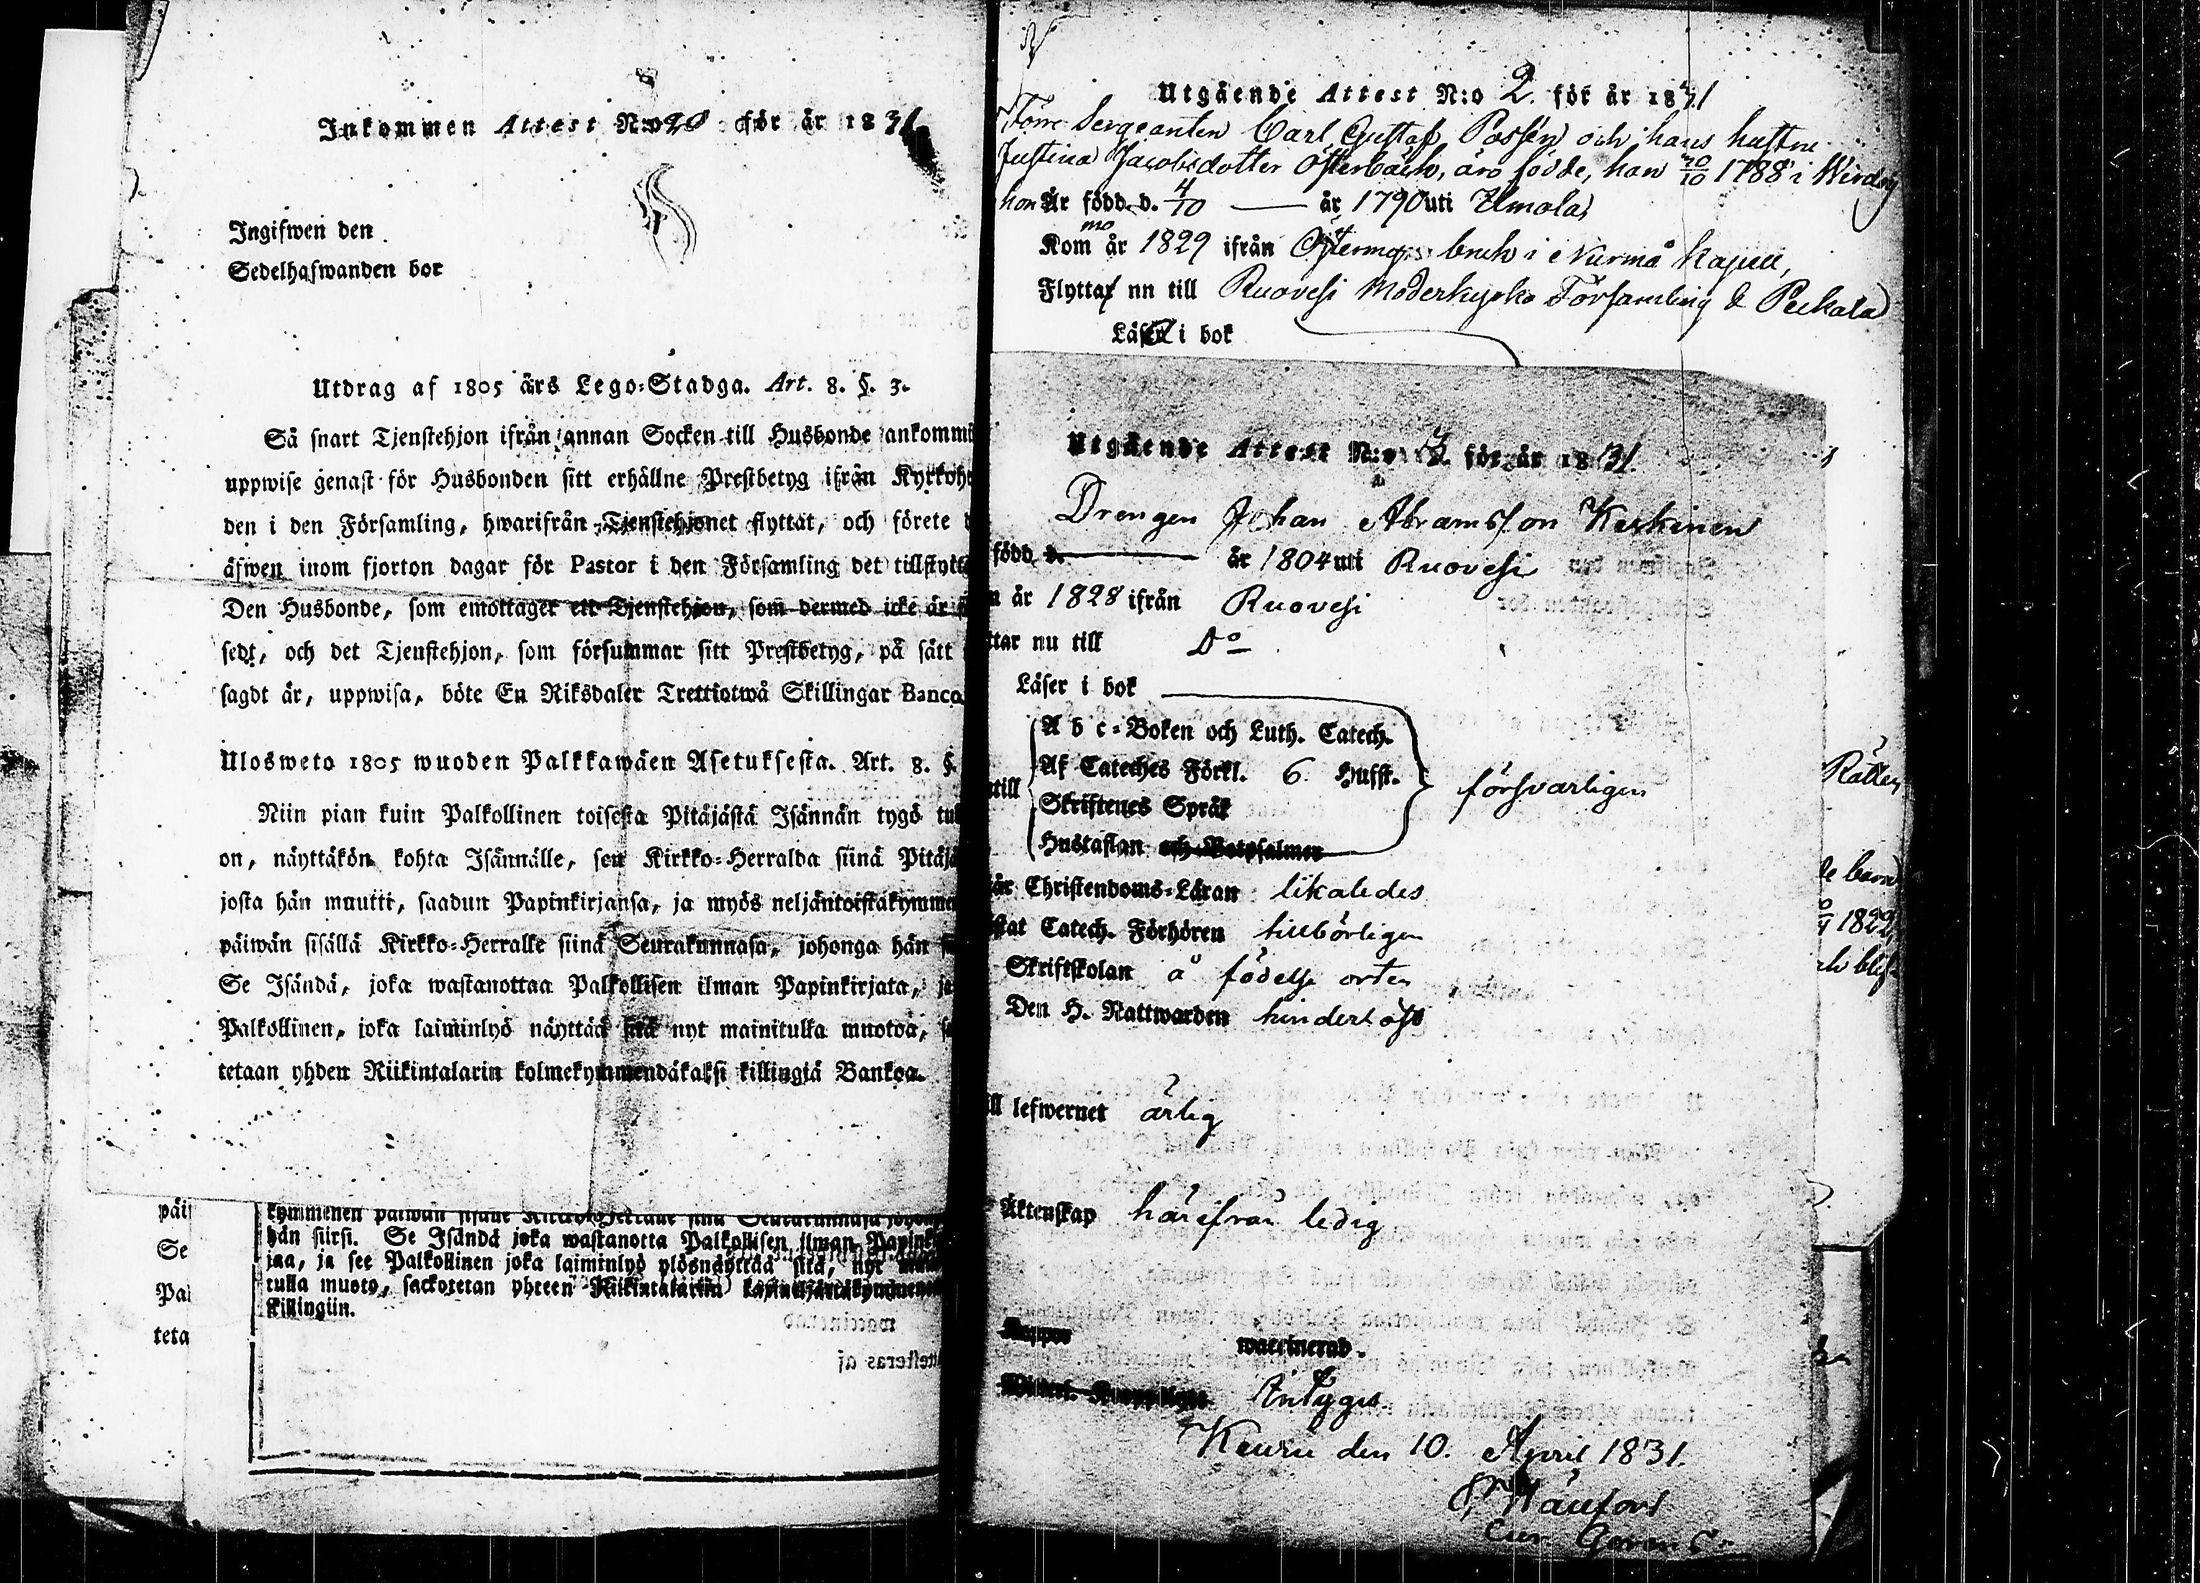 Inkommen Attest N:o 20 för år 1831
Ingifwen den
Sedelhafwanden bor
Utdrag af 1805 års Lego-Stadga. Art. 8. §. 3.
Så snart Tjenstehjon ifrån annan Socken till Husbonde ankommi
uppwise genast för Husbonden sitt erhållne Prestbetyg ifrån Kyrkohe
den i den Församling, hwarifrån Tjenstehjonet flyttat, och förete d
äfwen inom fjorton dagar för Pastor i den Församling det tillflytt
Den Husbonde, som emottager ett Tjenstehjon, som dermed icke är f
sedt, och det Tjenstehjon, som försummar sitt Prestbetyg, på sätt
sagdt är, uppwisa, böte En Riksdaler Trettiotwå Skillingar Banco.
Ulosweto 1805 wuoden Palkkawäen Asetuksesta. Art. 8. §.
Niin pian kuin Palkollinen toisesta Pitäjästä Isännän tygö tul
on, näyttäkön kohta Isännälle, sen Kirkko-Herralda siinä Pitäjä
josta hän muutti, saadun Papinkirjansa, ja myös neljäntoistakymme
päiwän sisällä Kirkko-Herralle siinä Seurakunnasa, johonga hän
Se Isändä, joka wastanottaa Palkollisen ilman Papinkirjata, ja
Palkollinen, joka laiminlyö näyttää sitä nyt mainitulla muotoa, s
tetaan yhden Riikintalarin kolmekymmendäkaksi killingiä Bankoa.
päi
Se
Pal
teta
kymmenen päiwän sisälle Kirkko-Herralle siinä Seurakunnasa johon
hän siirsi. Se Isändä joka wastanotta Palkollisen ilman Papink
jaa, ja see Palkollinen joka laiminlyö ylösnäyttää sitä, nyt
tulla muoto, sackotetan yhteen Riikintalariin
killingiin.
Utgående Attest N:o 2. för år 1831
Förre Sergeanten Carl Gustaf Possén och hans hustru
Justina Jacobsdotter Österback, äro födde, han 20/10 1788 i Wirdois
hon Är född d. 4/10 år 1790 uti Ilmola,
Kom mo år 1829 ifrån Östermyra bruk i Nurmo kapell,
Flytta nu till Ruovesi Moderkyrko Församling & Pekkala
Läsa i bok
Utgående Attest N:o 3. för år 1831.
Drengen Johan Abramsson Keskinen
född d. år 1804 uti Ruovesi
m år 1828 ifrån Ruovesi
ttar nu till Do
Läser i bok
A b c-Boken och Luth. Catech.
Af Cateches Förkl. 6. Hufst.
ntill
Skriftenes Språk
försvarligen
Hustaflan och Botpsalmer
är Christendoms-Läran likaledes
stat Catech. Förhören tillbörligen
Skriftskolan å födelse orten
Den H. Nattwarden hinderlöst
ll lefwernet ärlig
Äktenskap härifrån ledig
Koppor waccinerad.
intygas
Keuru den 10. April 1831.
Rätten
de barn
1822,